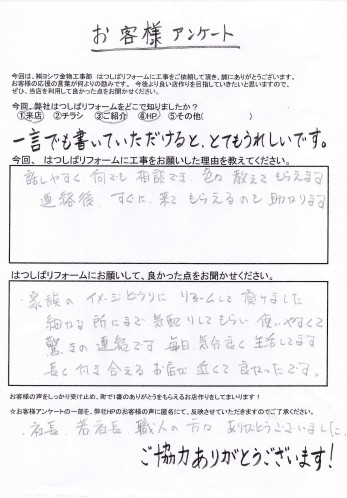 お客様アンケート
今回は、㈱ヨシワ金物工事部 はつしばリフォームに工事をご依頼して頂き、誠にありがとうございます。
お客様の応援の言葉が何よりの励みです。今後より良い店作りを目指していきたいと思いますので、
ぜひ、当店を利用して良かった点をお聞かせください。
今回、弊社はつしばリフォームをどこで知りましたか？
①来店 ②チラシ ③ご紹介 ④HP ⑤その他( )
一言でも書いていただけると、とてもうれしいです。
今回、はつしばリフォームに工事をお願いした理由を教えてください。
話しやすく 何でも 相談でき、色々 教えて もらえます
連絡後、すぐに 来て もらえるのも 助かります
はつしばリフォームにお願いして、良かった点をお聞かせください。
・家族の イメージどうりに リフォームして 頂けました
細かな 所にまで 気配りして もらい 使いやすくて
驚きの 連続です 毎日 気分良く 生活してます
長く 付き合える お店が 近くて 良かったです。
お客様の声をしっかり受け止め、町で1番のありがとうをもらえるお店作りをしてまいります！
☆お客様アンケートの一部を、弊社HPのお客様の声に匿名にて、反映させていただきますのでご了承ください。
・社長、若社長、職人の 方々 ありがとうございました。
ご協力ありがとうございます！